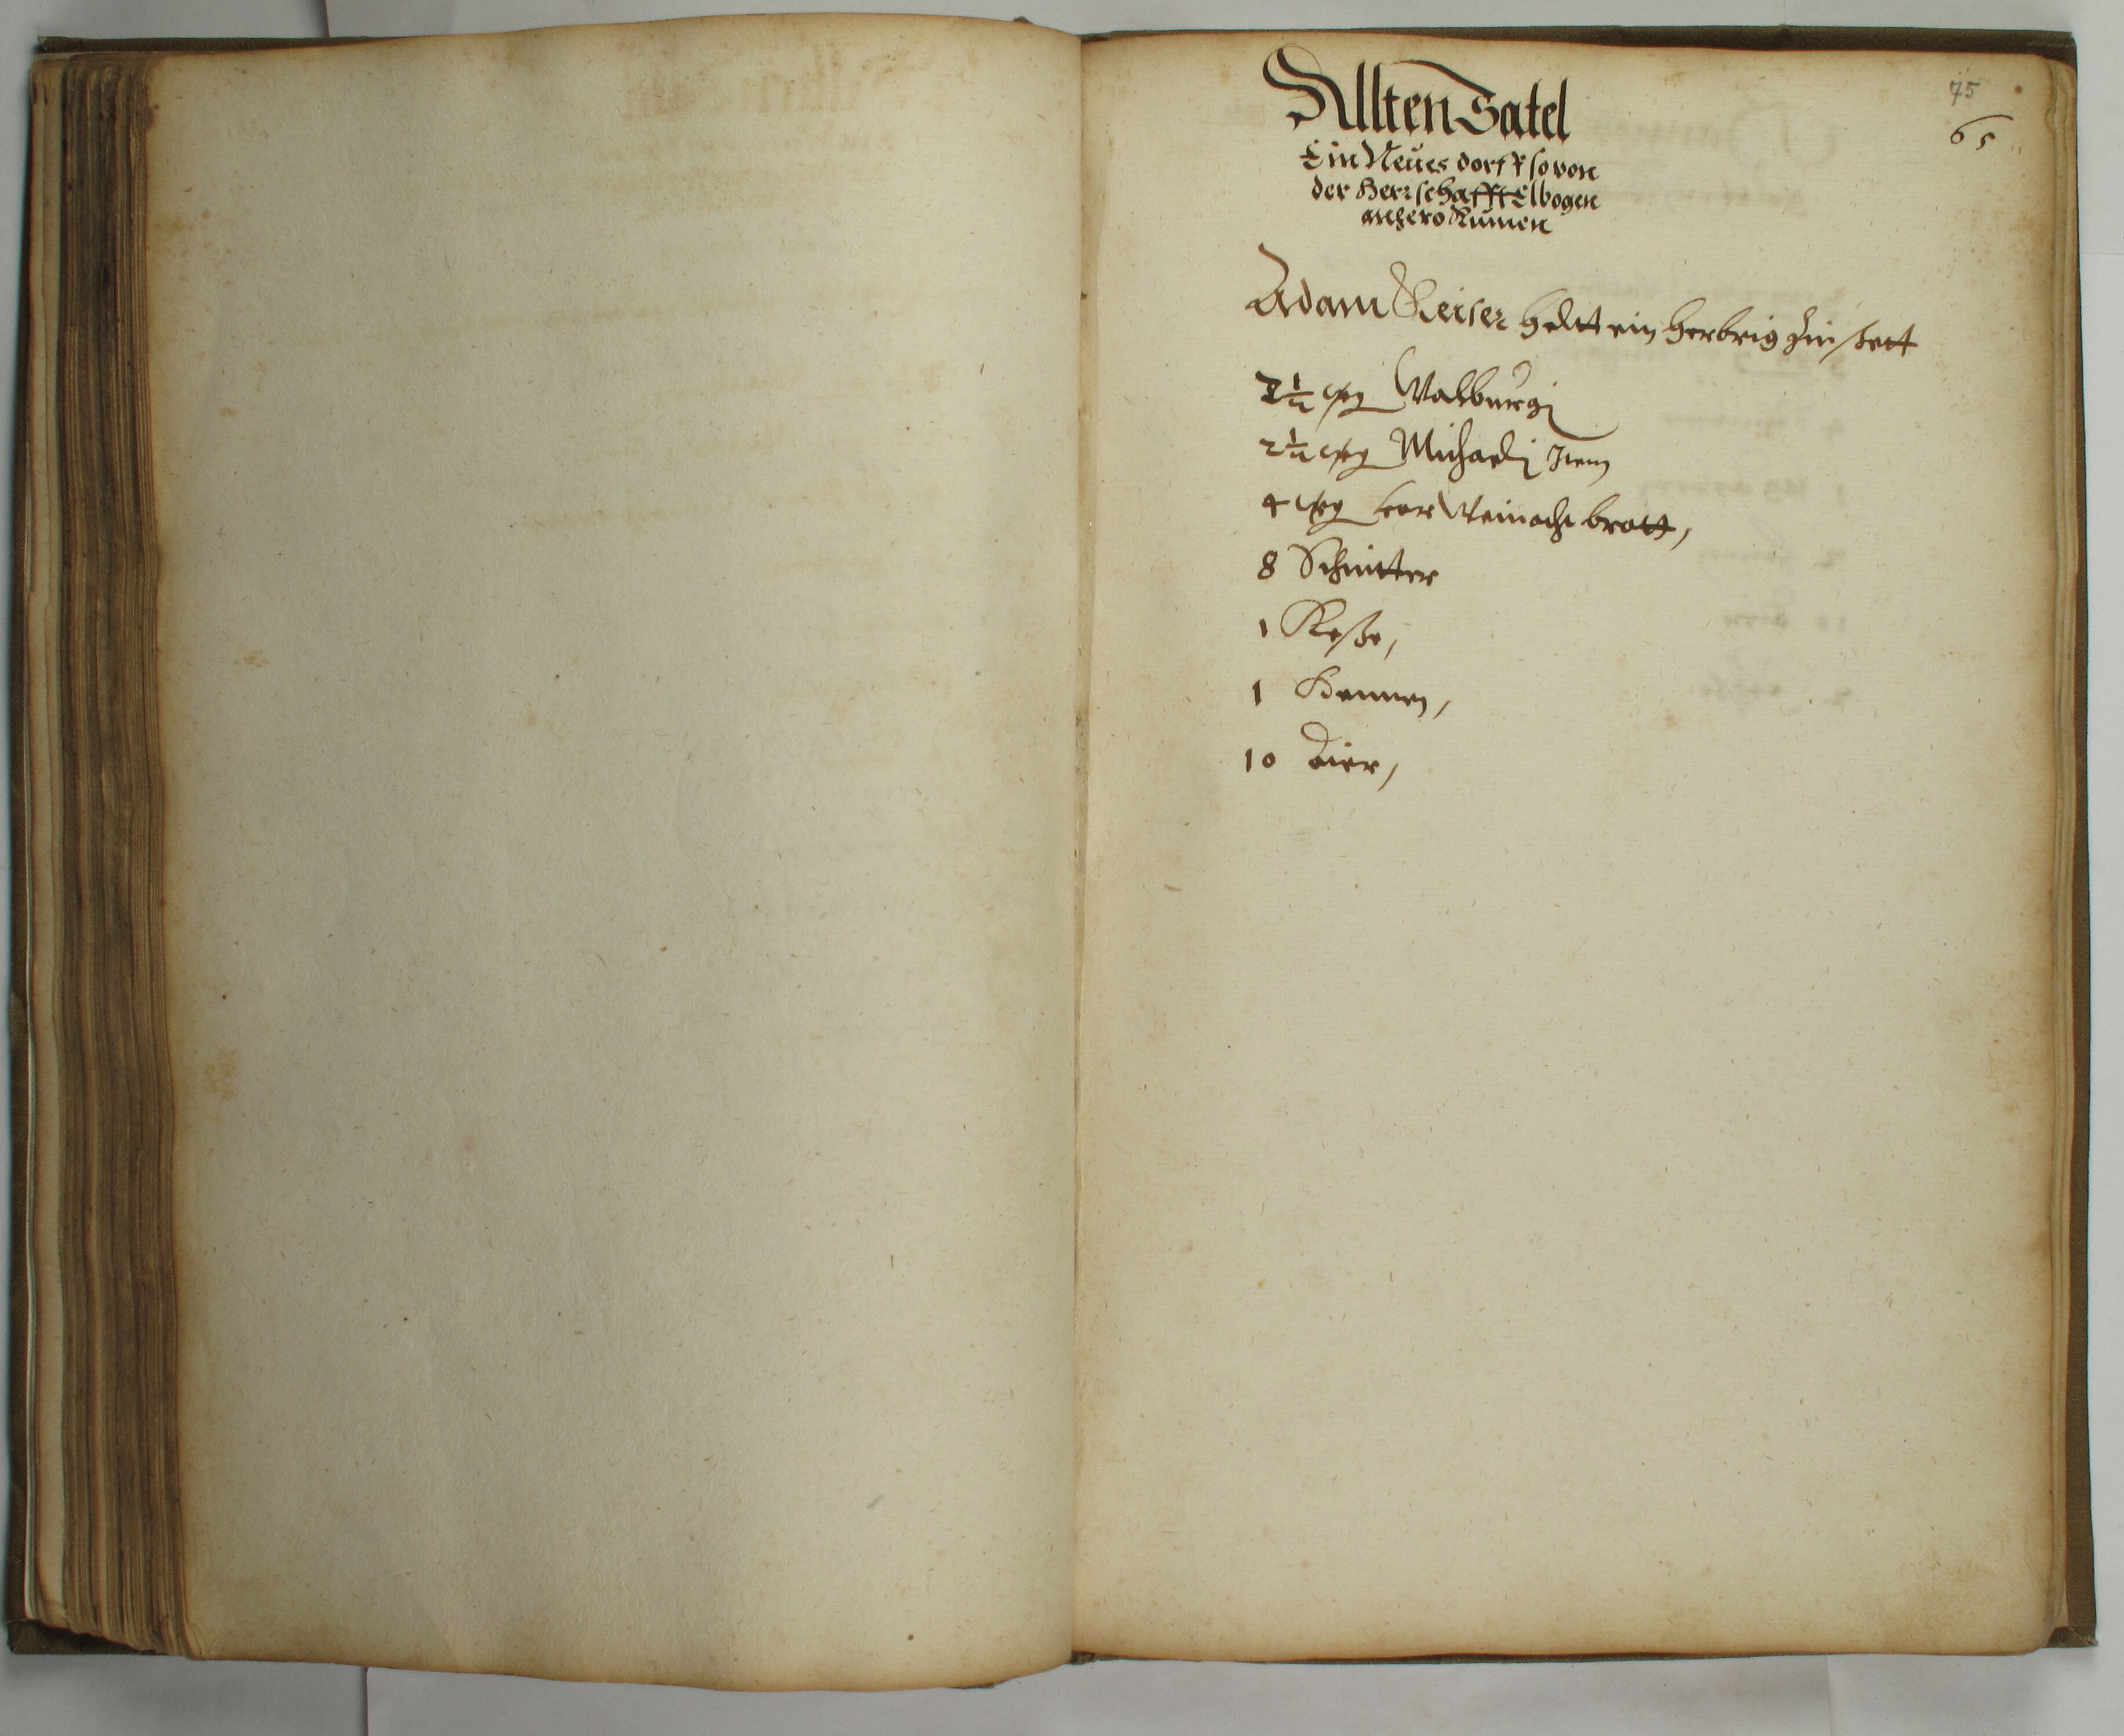 75
65
Allten Satel
Ein Neües dorff so von
der Herrschafft Elbogen
anhero Kumen
Adam Keiser heltt ein herbrig Zinstett
2½ gr Walburgi
2½ gr Michaeli Item
4 gr vor Weinacht brott,
8 Schnitter
1 Keße,
1 Hennen,
10 Aier,